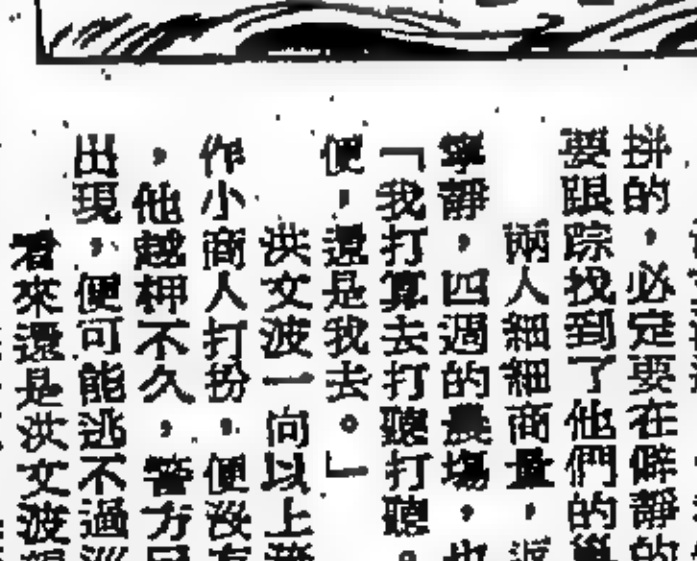 拼的，必定要在僻靜的
要跟踪找到了他們的巢
兩人細細商量，返
寧靜，四週的農塲，也
「我打算去打聽打聽。
便，還是我去。」
洪文波一向以上
作小商人打扮，便沒有
，他越柙不久，警方
出現，便可能逃不過巡
看來還是洪文波